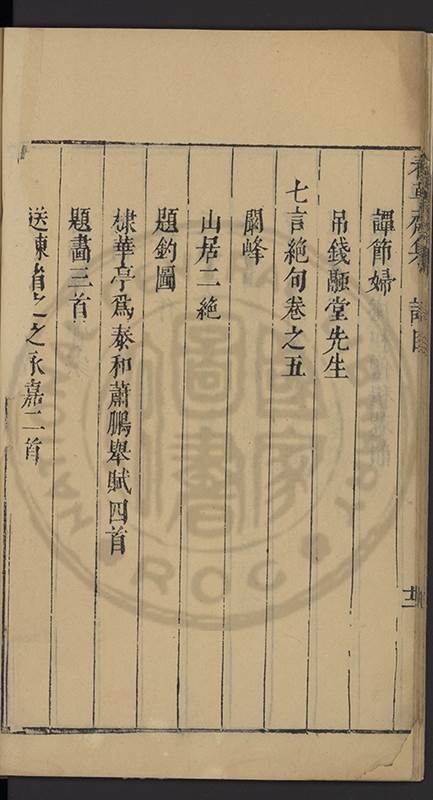 譚節婦
吊錢融堂先生
七言絶句卷之五
閬峰
山居二絶
題釣圖
棣華亭爲泰和蕭鵬舉賦四首
題畫三首
送陳省之之永嘉二首